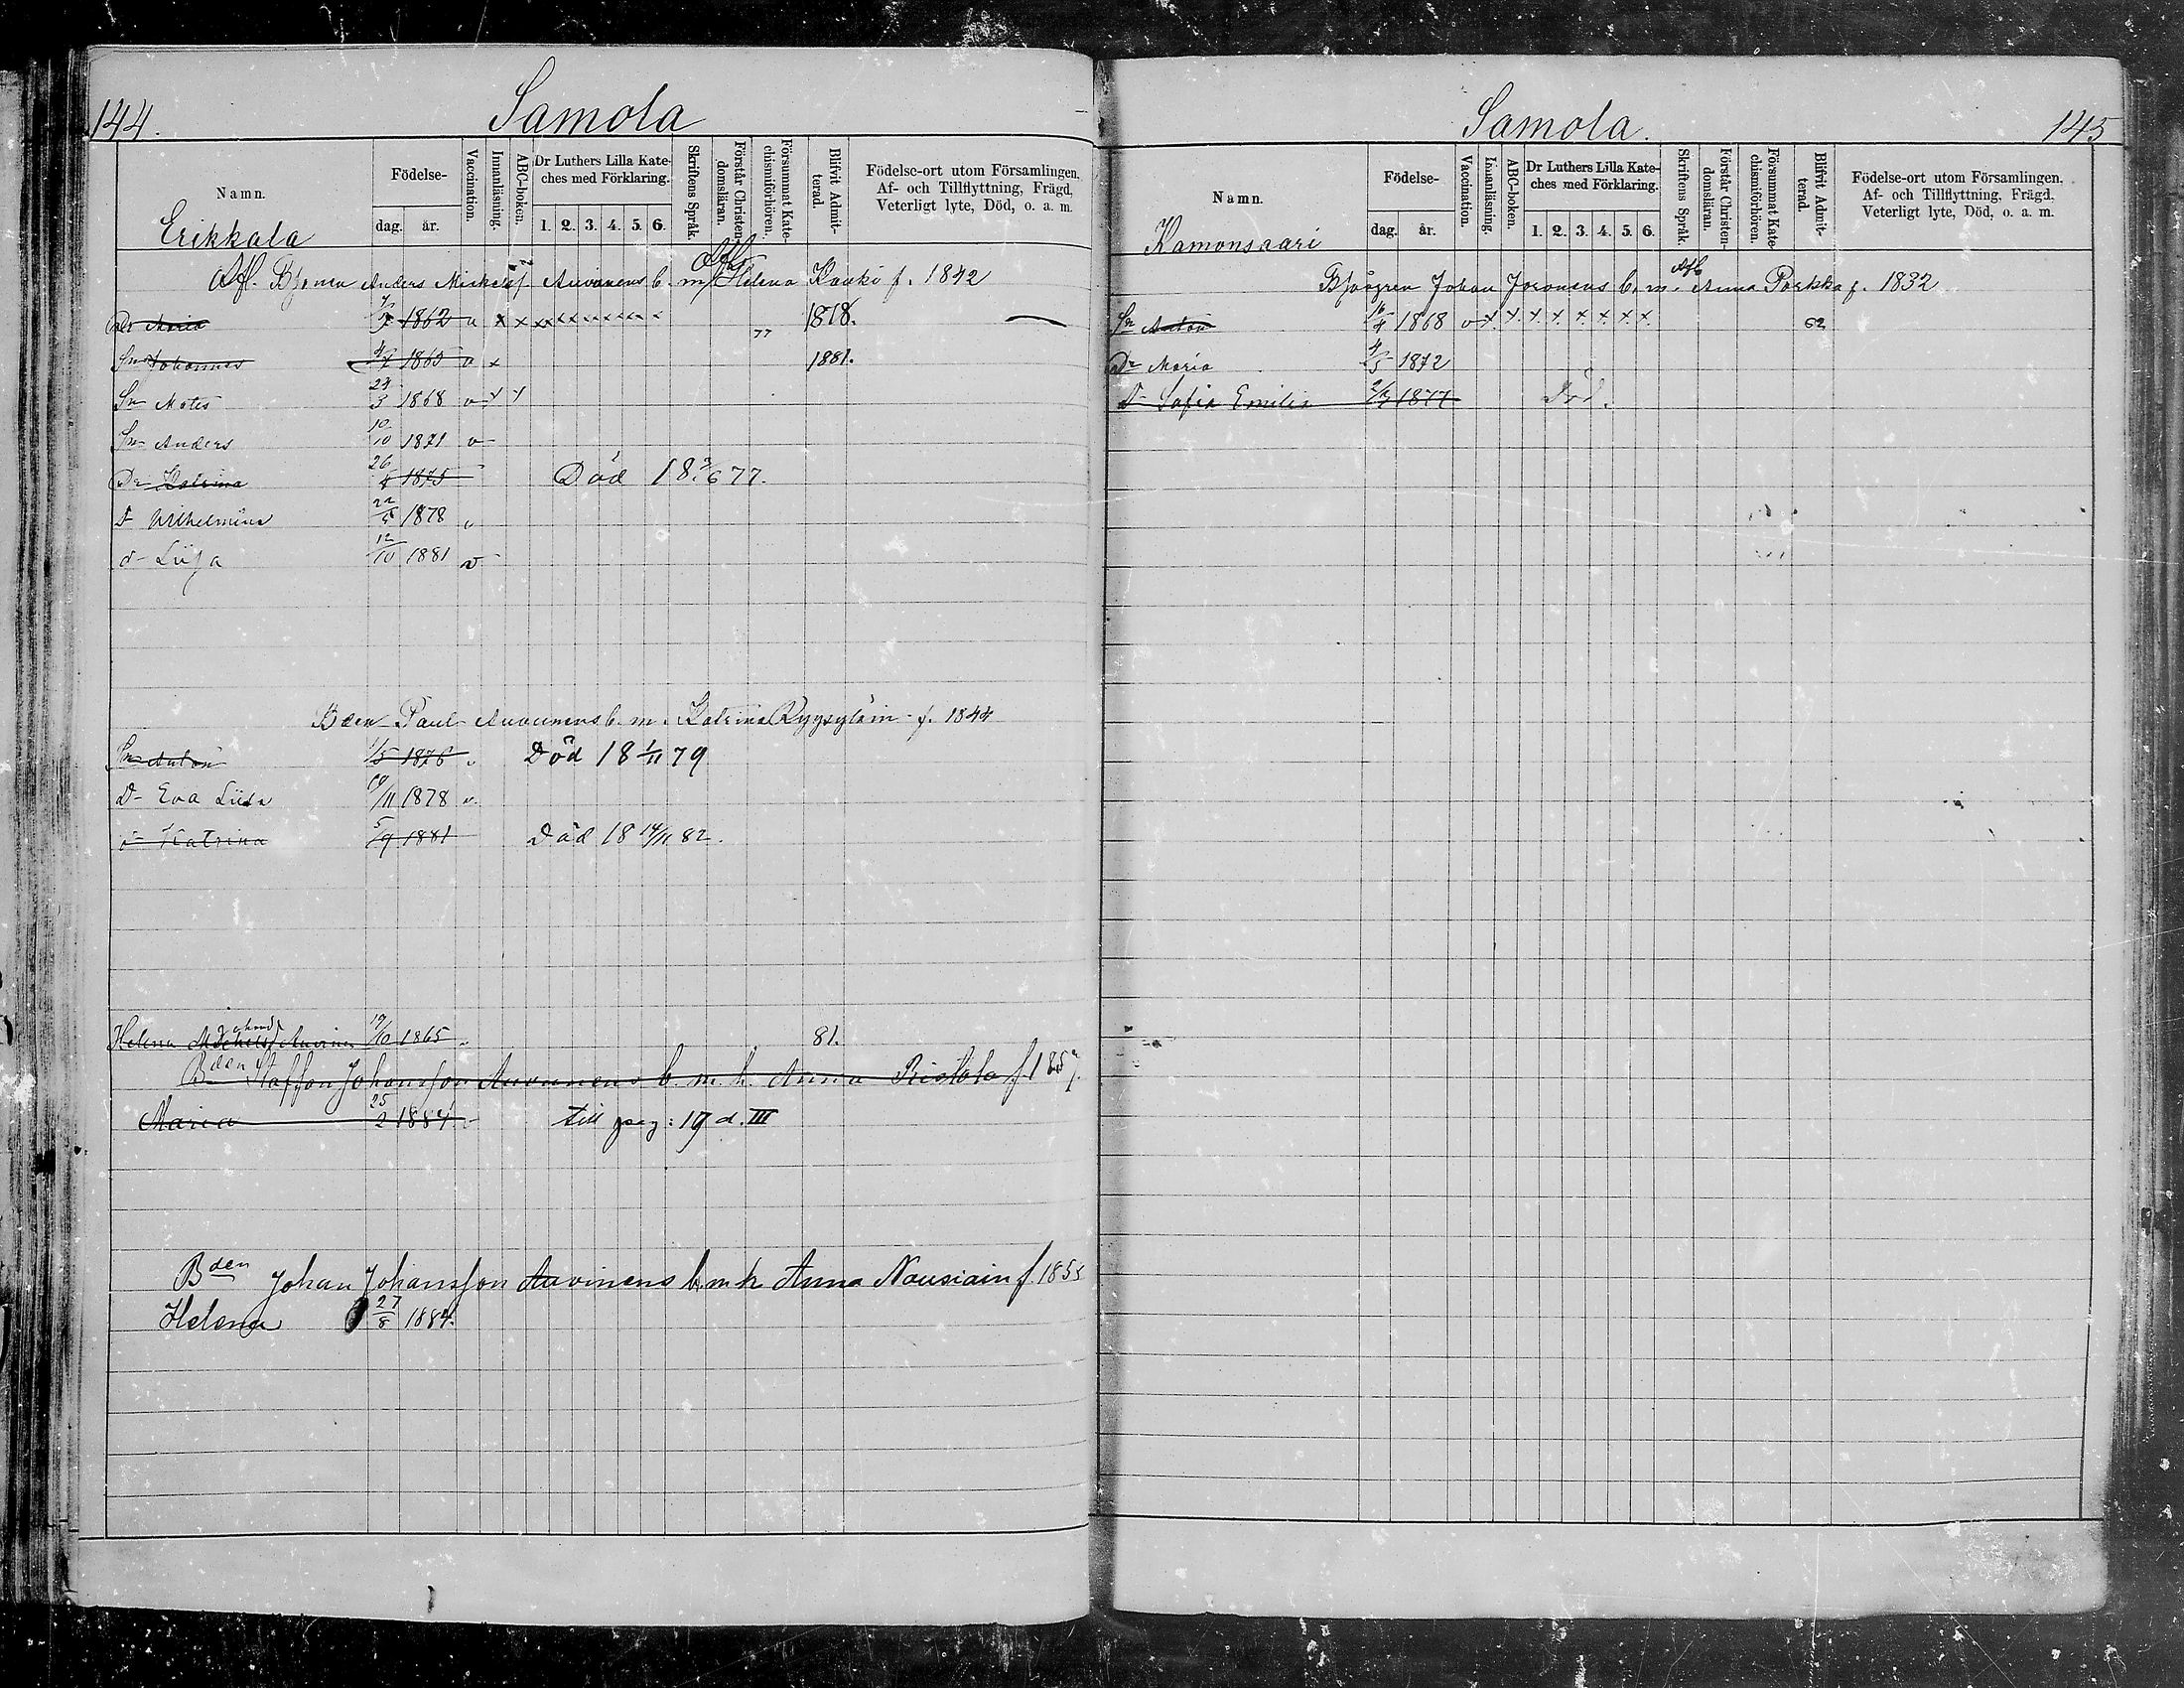 144.
Samola
Namn.
Födelse-
dag.
år.
Vaccination.
Innanläsning.
ABC-boken.
Dr Luthers Lilla Kate-
ches med Förklaring.
1. 2. 3. 4. 5. 6.
Skriftens Språk.
Förstår Christen-
domsläran.
Försummat Kate-
chismiförhören.
Blifvit Admit-
terad.
Födelse-ort utom Församlingen.
Af- och Tillflyttning, Frägd,
Veterligt lyte, Död, o. a. m.
Erikkala
Afl. Anders Auvinens b. m. Afl. Helena Kaukö f. 1842
Dr Maria 1862 v x x x x x x x x x 77 1878.
Sn Johannes 1865 v x 1881.
Sn Mats 24/3 1868 v x x
Sn Anders 10/10 1871 v
Dr Katrina 26/4 1875 Död 18 3/6 77.
D Wilhelmina 22/5 1878 v
d Liisa 12/10 1881 v
Bden Paul Auvinens b. m. Katrina Ryysyläin f. 1844
Sn Anton 1/5 1876 v Död 18 1/11 79
D Eva Liisa 10/11 1878 v.
d Katrina 5/9 1881 Död 18 14/11 82.
Helena Auvinen 19/10 1865 81.
Bden Staffan Johansson Auvinens b. m. h. Anna Ristola f. 1857.
Maria 25/2 1884 v till pag: 19 d. III
Bden Johan Johansson Auvinens b. m. h. Anna Nousiain f. 1855
Helena 27/8 1884.
Samola.
145
Namn.
Födelse-
dag.
år.
Vaccination.
Innanläsning.
ABC-boken.
Dr Luthers Lilla Kate-
ches med Förklaring.
1. 2. 3. 4. 5. 6.
Skriftens Språk.
Förstår Christen-
domsläran.
Försummat Kate-
chismiförhören.
Blifvit Admit-
terad.
Födelse-ort utom Församlingen.
Af- och Tillflyttning, Frägd,
Veterligt lyte, Död, o. a. m.
Kamonsaari
Johan Joronens b. m. Afl. Anna Porkka f. 1832
Sn Anton 16/4 1868 v x. x. x. x. x. x. x. x.
Dr Maria 4/5 1872
D Sofia Emilia 2/7 1877 Död.